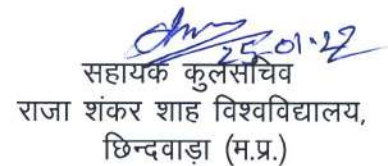 25-01-22
सहायक कुलसचिव
राजा शंकर शाह विश्वविद्यालय,
छिन्दवाड़ा (म.प्र.)